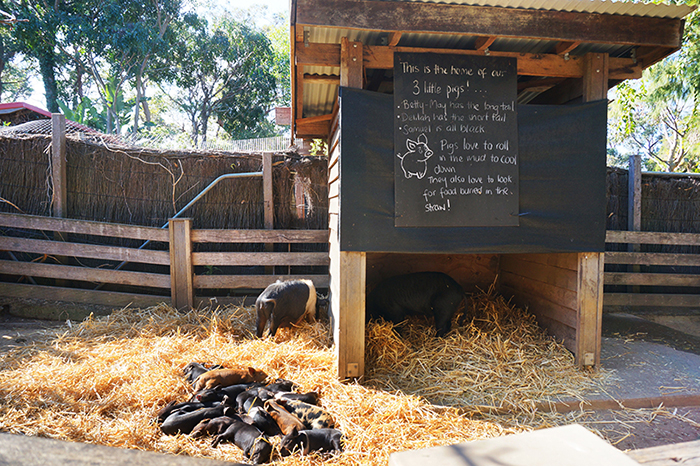 This is the home of our
3 little pigs!...
• Betty-May has the long tail
• Delilah has the short tail
• Samael is all black
Pigs love to roll
in the mud to cool
down
They also love to look
for food buried in the
straw!